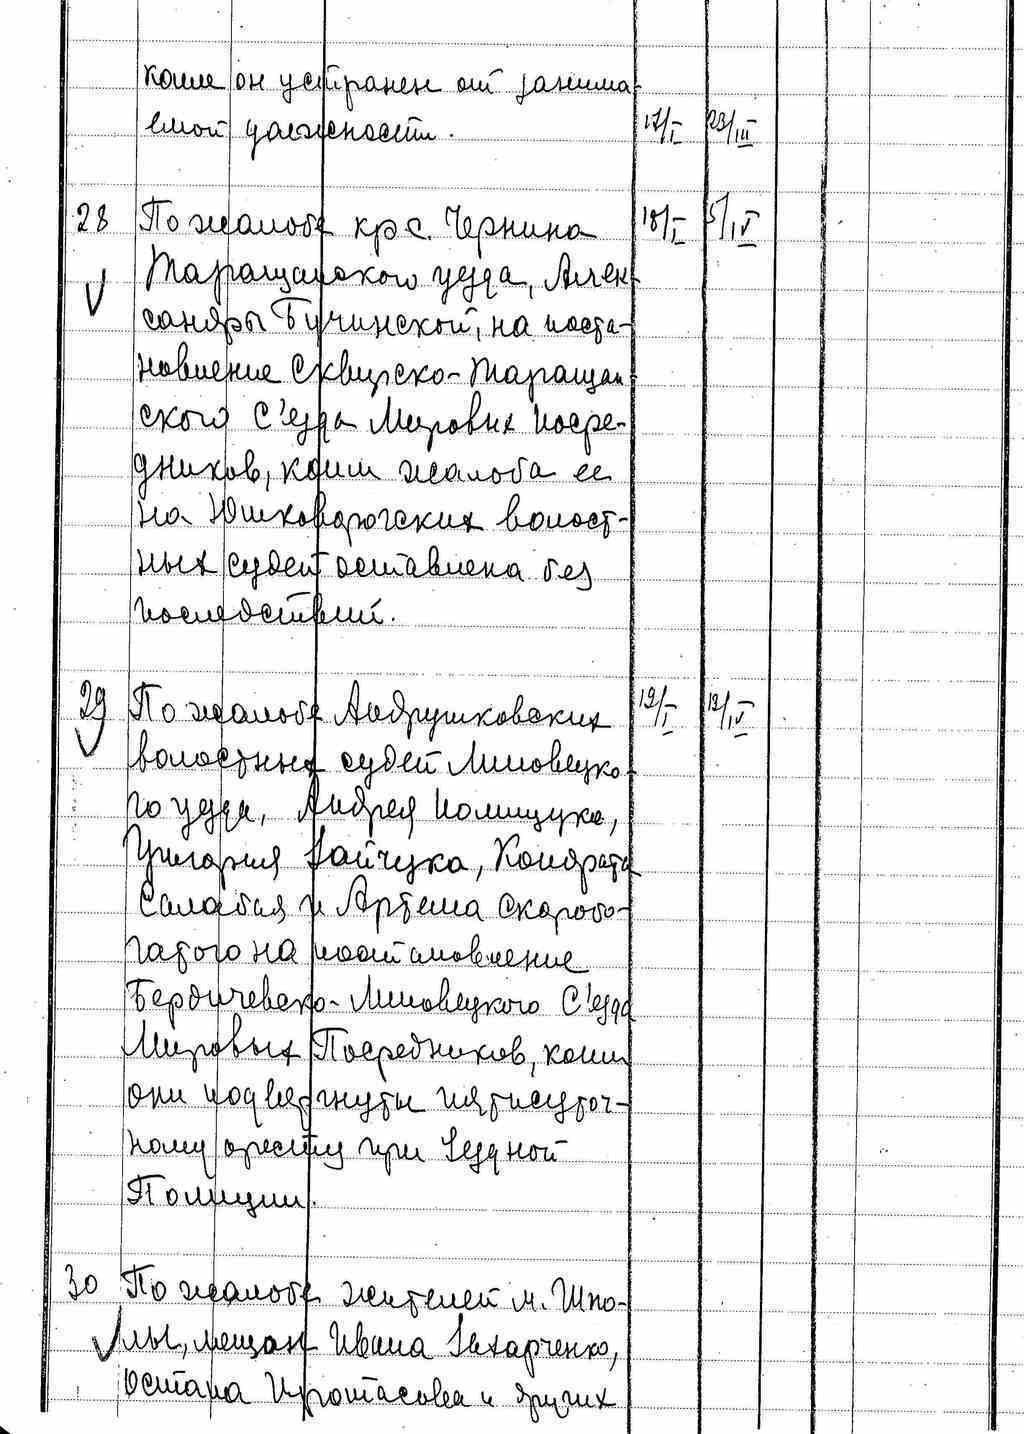 коим он устранен от занима-
емой должности. 17/I 23/III
28 По жалобе кр. с. Чернина 18/I 5/IV
Таращанского уезда, Алек-
сандры Бучинской, на поста-
новление Сквирско-Таращан
ского С'езда Мировых Посре-
дников, коим жалоба ее
на Юшковорогских волост-
ных судей оставлена без
последствий.
29 По жалобе Андрушковских 19/I 19/IV
волостных судей Липовецко-
го уезда, Андрея Полищука,
Григория Зайчука, Кондрата
Салабая и Артема Скоробо-
гатого на постановление
Бердичевско-Липовецкого С'езда
Мировых Посредников, коим
они подвергнуты пятисуточ-
ному аресту при Уездной
Полиции.
30 По жалобе жителей м. Шпо-
лы, мещан Ивана Захарченко,
Остапа Протасова и других